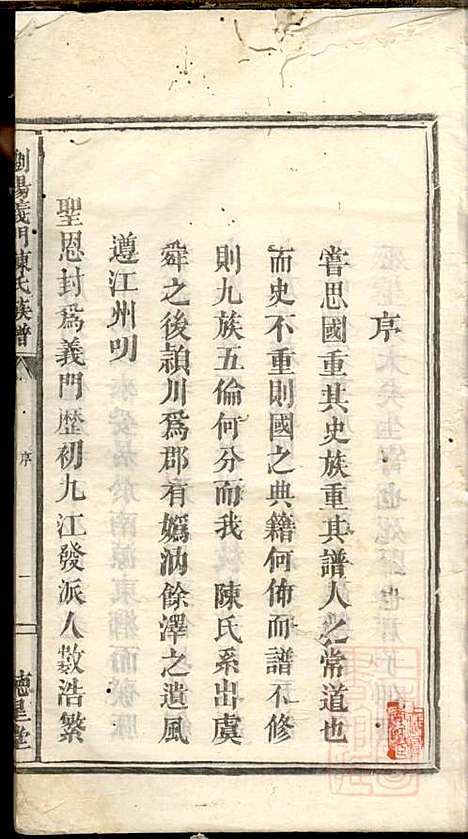 序
嘗思國重其史族重其譜人之常道也
而史不重則國之典籍何佈而譜不修
則九族五倫何分而我 陳氏系出虞
舜之後潁川爲郡有嬀汭餘澤之遺風
遵江州明
聖恩封爲義門歷初九江發派人数浩繁
瀏陽義門陳氏族譜
序
一
德星堂